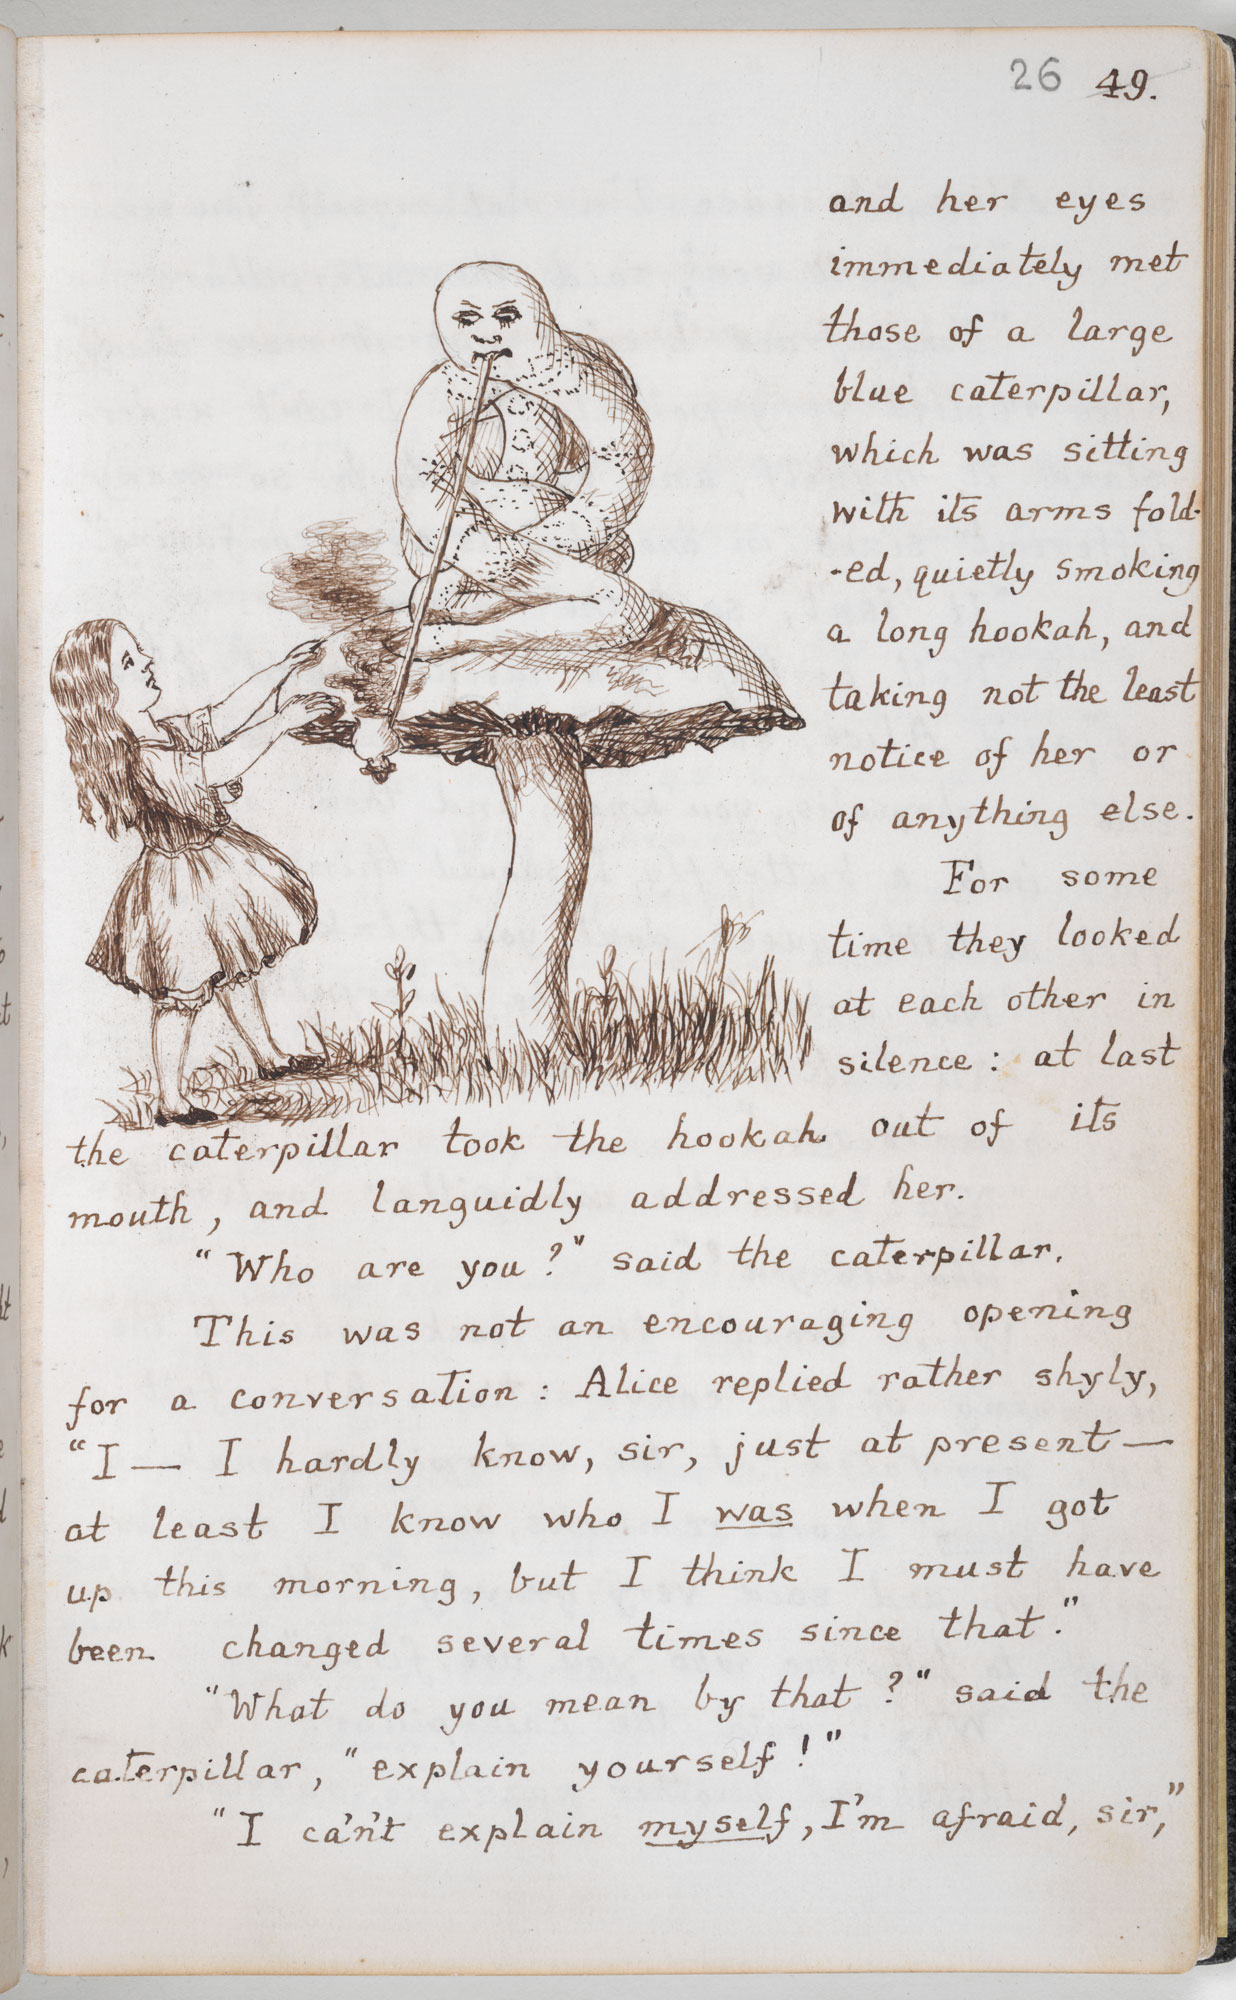 26 49.
and her eyes
immediately met
those of a large
blue caterpillar,
which was sitting
with its arms fold-
-ed, quietly smoking
a long hookah, and
taking not the least
notice of her or
of anything else.
For some
time they looked
at each other in
silence: at last
the caterpillar took the hookah out of its
mouth, and languidly addressed her.
"Who are you?" said the caterpillar.
This was not an encouraging opening
for a conversation: Alice replied rather shyly,
"I — I hardly know, sir, just at present —
at least I know who I was when I got
up this morning, but I think I must have
been changed several times since that."
"What do you mean by that?" said the
caterpillar, "explain yourself!"
"I ca'n't explain myself, I'm afraid, sir,"